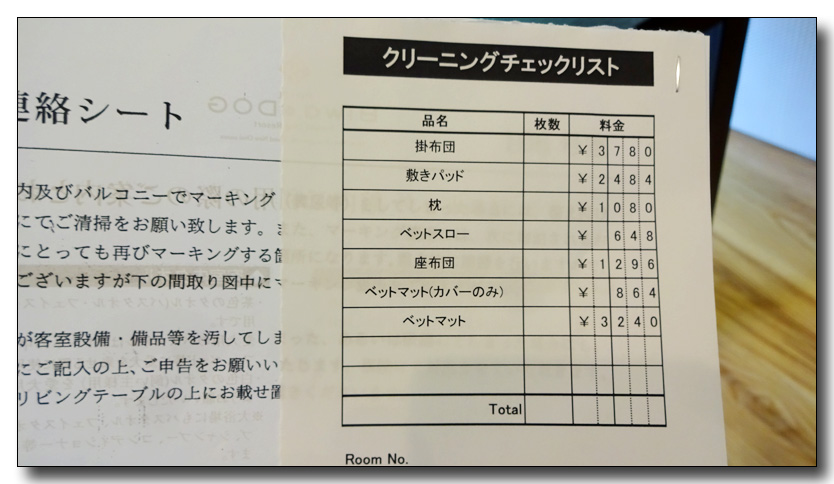 連絡シート
内及びバルコニーでマーキング
にてご清掃をお願い致します。
にとっても再びマーキングする箇
ございますが下の間取り図中に
が客室設備・備品等を汚してしま
にご記入の上、ご申告をお願いい
リビングテーブルの上にお載せ置
クリーニングチェックリスト
品名 枚数 料金
掛布団 ¥3780
敷きパッド ¥2484
枕 ¥1080
ベットスロー ¥648
座布団 ¥1296
ベットマット(カバーのみ) ¥864
ベットマット ¥3240
Total
Room No.